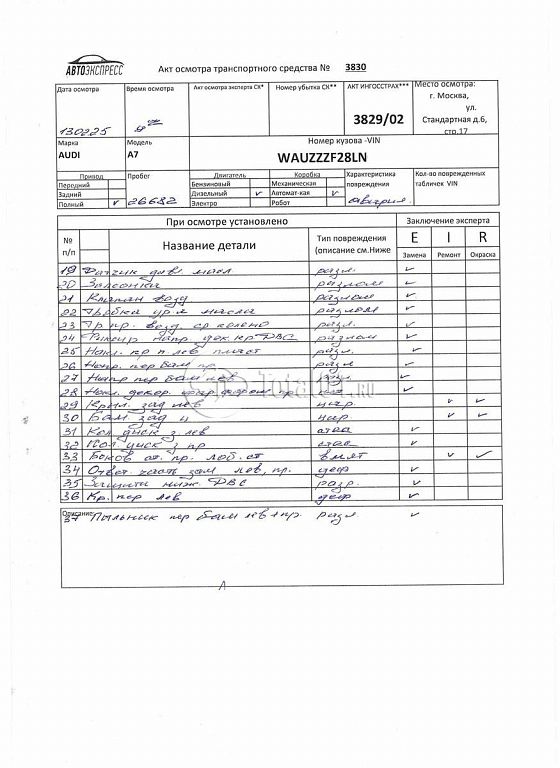 АВТОЭКСПРЕСС
Акт осмотра транспортного средства № 3830
Дата осмотра Время осмотра Акт осмотра эксперта СК* Номер убытка СК** АКТ ИНГОССТРАХ*** Место осмотра:
г. Москва,
ул.
130225 3829/02 Стандартная д.6,
стр.17
Марка Модель Номер кузова -VIN
AUDI A7 WAUZZZF28LN
Привод Пробег Двигатель Коробка Характеристика повреждения Кол-во поврежденных табличек VIN
Передний Бензиновый Механическая
Задний Дизельный v Автомат-кая v
Полный v 26682 Электро Робот
При осмотре установлено Заключение эксперта
№ п/п Название детали Тип повреждения (описание см.Ниже E I R
Замена Ремонт Окраска
19 Датчик давл масл разл. ✓
20 Заслонка разлом ✓
21 Клапан возд разлом ✓
22 Трубка ур-я масла разлом ✓
23 Тр. пр. возд ср колено разл. ✓
24 напр. ДВС разлом ✓
25 Накл. кр п. лев пласт разл. ✓
26 Напр. пер бам пр. разл ✓
27 Напр пер бам лев разл. ✓
28 Накл. декор. пр ✓
29 Крыл. зад лев нар. ✓ ✓
30 Бам. зад н нар ✓ ✓
31 Кол диск з лев ✓
32 Кол диск з пр ✓
33 Боков ст. пр. лоб. ст вмят ✓ ✓
34 Ответ. часть зам лев, пр. деф ✓
35 Защита ниж. ДВС разр. ✓
36 Кр. пер лев деф ✓
Описание:
37 Пыльник пер бам лев+пр. разл ✓
Total01.RU